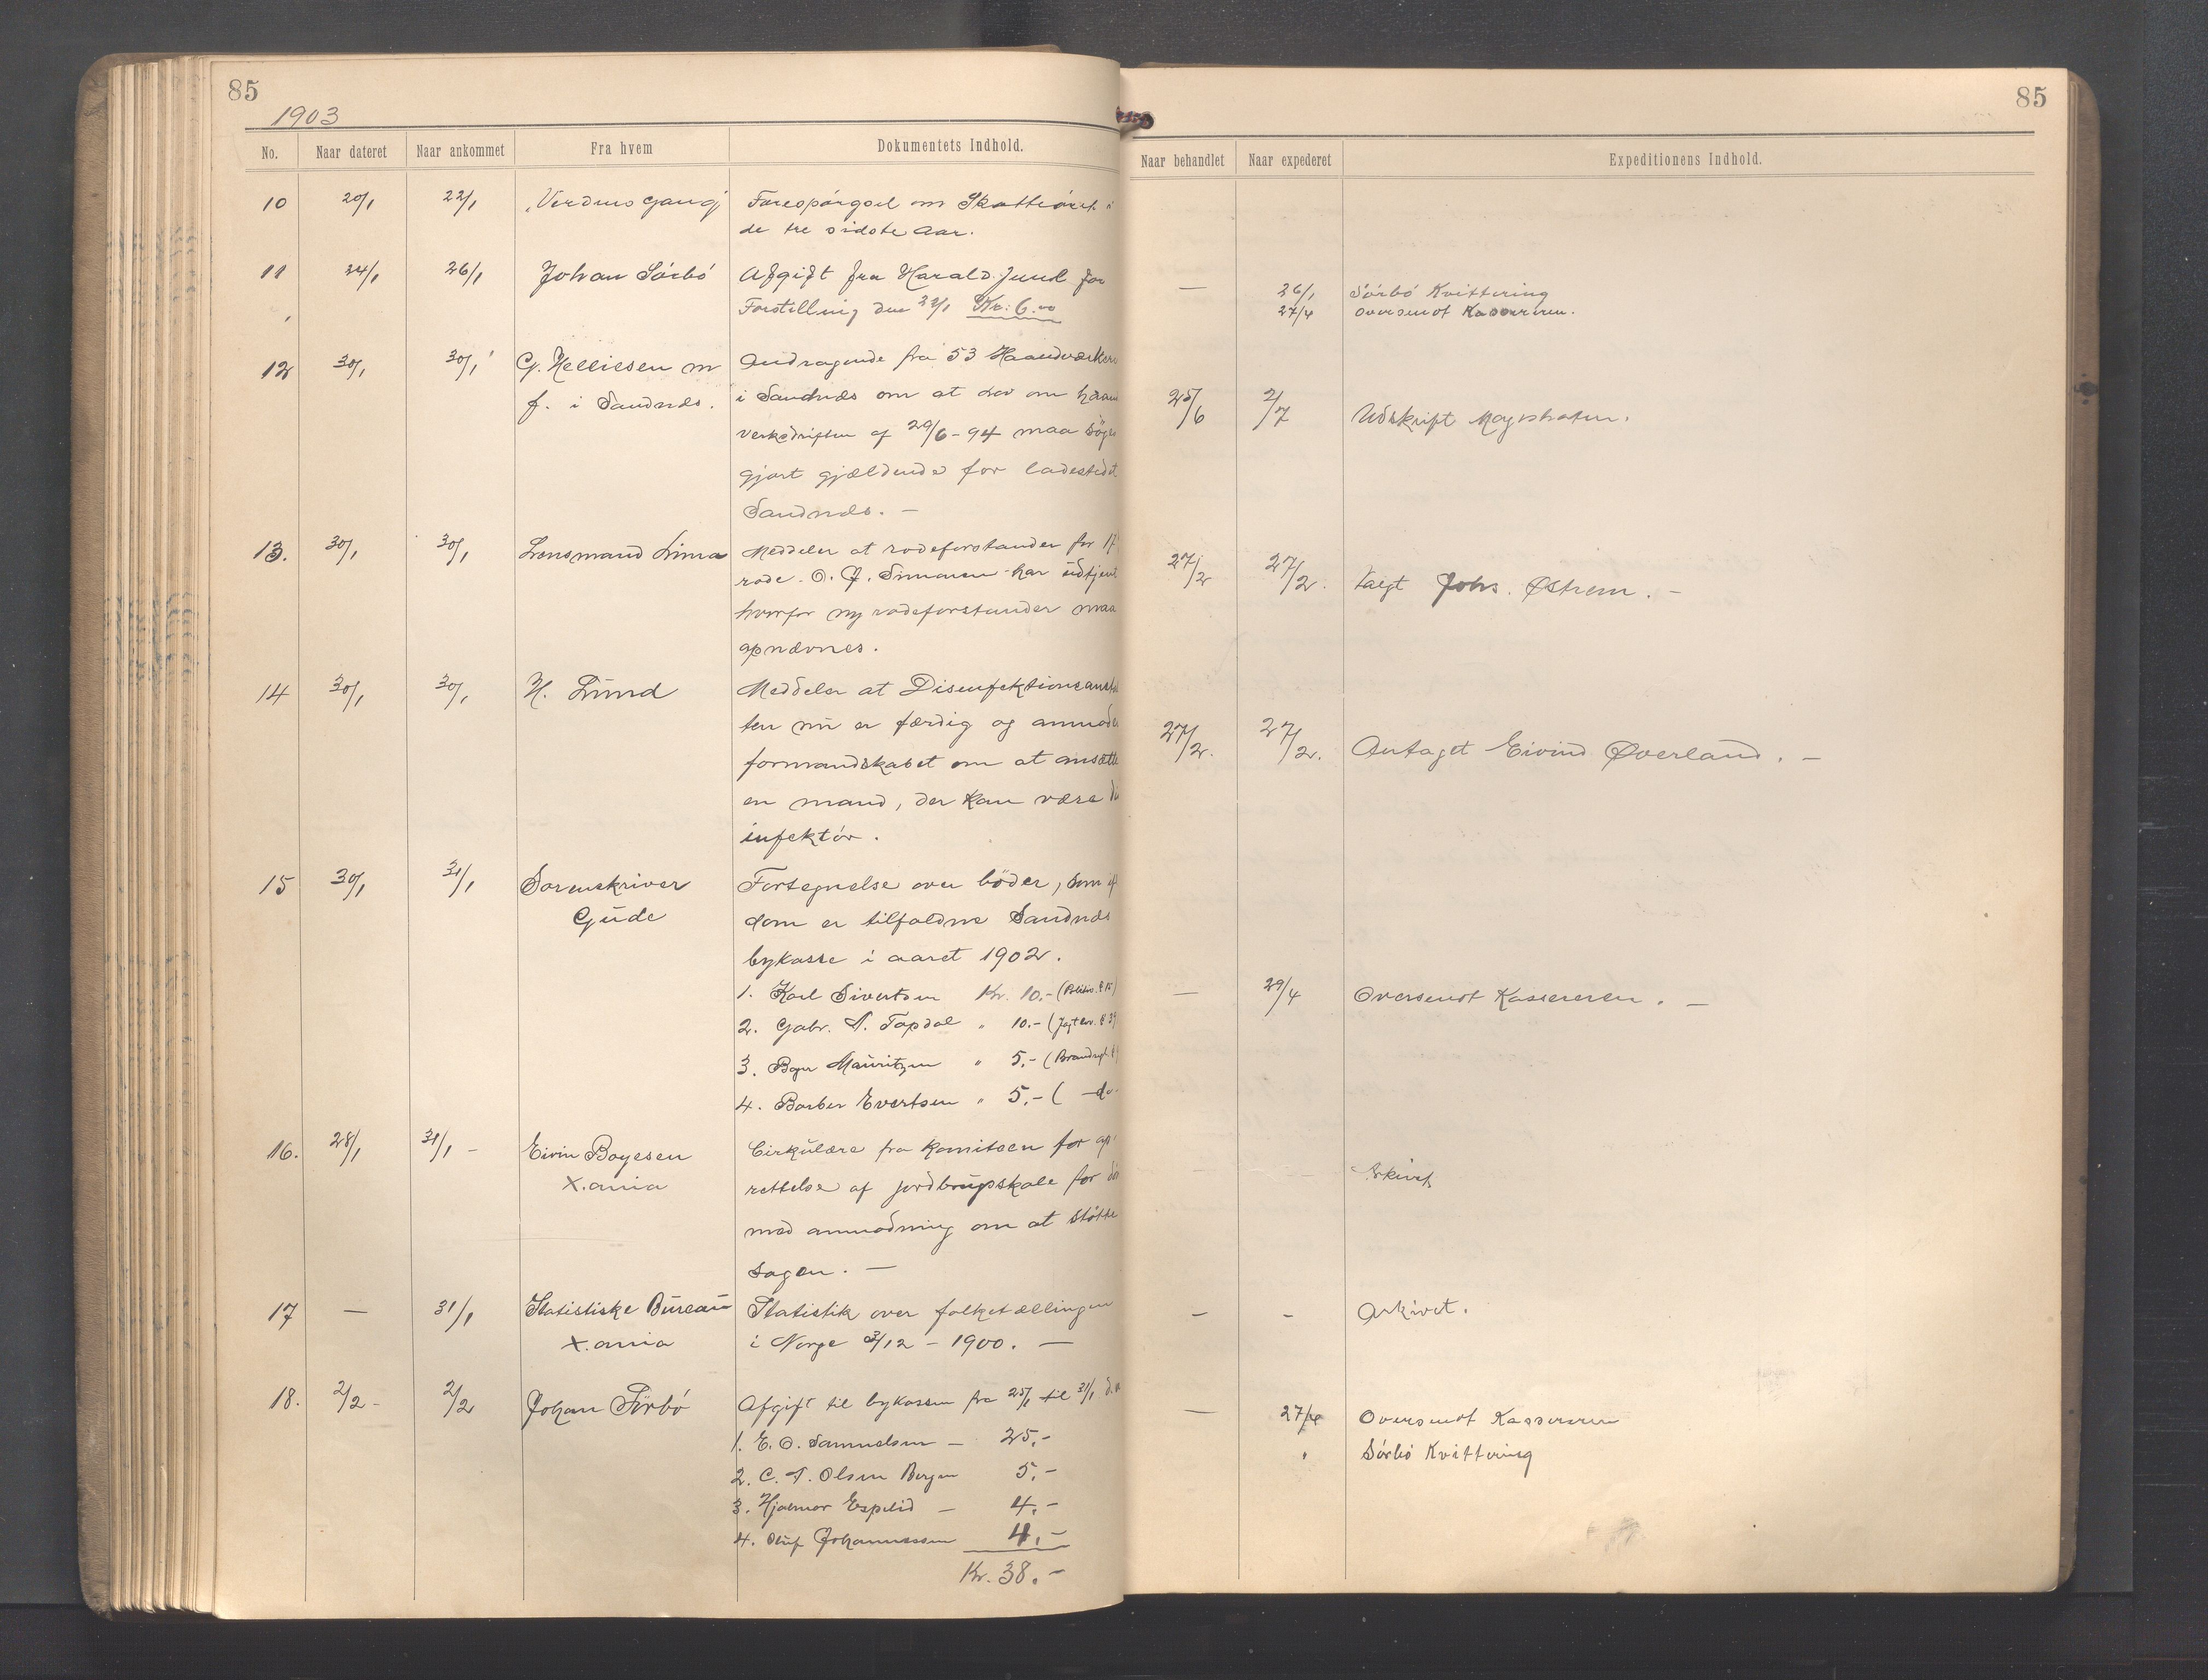 85
1903
No.
Naar dateret
Naar ankommet
Fra hvem
Dokumentets Indhold.
10 20/1 22/1 „Verdens gang" Forespørgsel om Skatteøret i
de tre sidste Aar.
11 24/1 26/1 Johan Sörbö Afgift fra Harald Juul for
Forstilling den 22/1 Kr. 6.00
12 30/1 30/1 G. Helliesen m Andragende fra 53 Haandværkere
f. i Sandnæs. i Sandnæs om at lov om haand
verksdriften af 29/6-94 maa søges
gjort gjældende for ladestedet
Sandnæs. —
13. 30/1 30/1 Lensmand Lima Meddeler at rodeforstander for 17
rode. O. J. Simonsen har udtjent
hvorfor ny rodeforstander maa
opnævnes.
14 30/1 30/1 H. Lund Meddeler at Disenfektionsanstal
ten nu er færdig og anmoder
formandskabet om at ansætte
en mand, der kan være di
infektör.
15 30/1 31/1 Sorenskriver Fortegnelse over böder, som if
Gude dom er tilfaldne Sandnæs
bykasse i aaret 1902.
1. Karl Sivertsen Kr. 10.- (Politiv. § 15)
2. Gabr. A. Topdal " 10.- (Jagtlov. § 39
3. Bger Mauritzen " 5.- (
4. Barber Evertsen " 5.- ( -do-
16. 28/1 31/1 - Eivin Boyesen Cirkulære fra komiteen for op
X.ania rettelse af jordbrugsskole for dö
med anmodning om at støtte
sagen. —
17 — 31/1 Statistiske Bureau Statistik over folketællingen
X.ania i Norge 3/12 - 1900. —
18. 2/2 - 2/2 Johan Sörbö Afgift til bykassen fra 25/1 til 31/1
1. E. O. Samuelsen — 25.-
2. C. A. Olsen Bergen 5.-
3. Hjalmar Espelid — 4.-
4. Oluf Johannessen 4.-
Kr. 38.-
85
Naar behandlet
Naar expederet
Expeditionens Indhold.
— 26/1 Sörbö Kvittering
27/4 oversendt Kassereren.
25/6 2/7 Udskrift Magistraten.
27/2 27/2. Valgt Johs. Østrem. —
27/2. 27/2. Antaget Eivind Øverland. —
— 29/4 Oversendt Kassereren. —
Arkivet
— - Arkivet.
— 27/4 Oversendt Kassereren
" Sörbö Kvittering